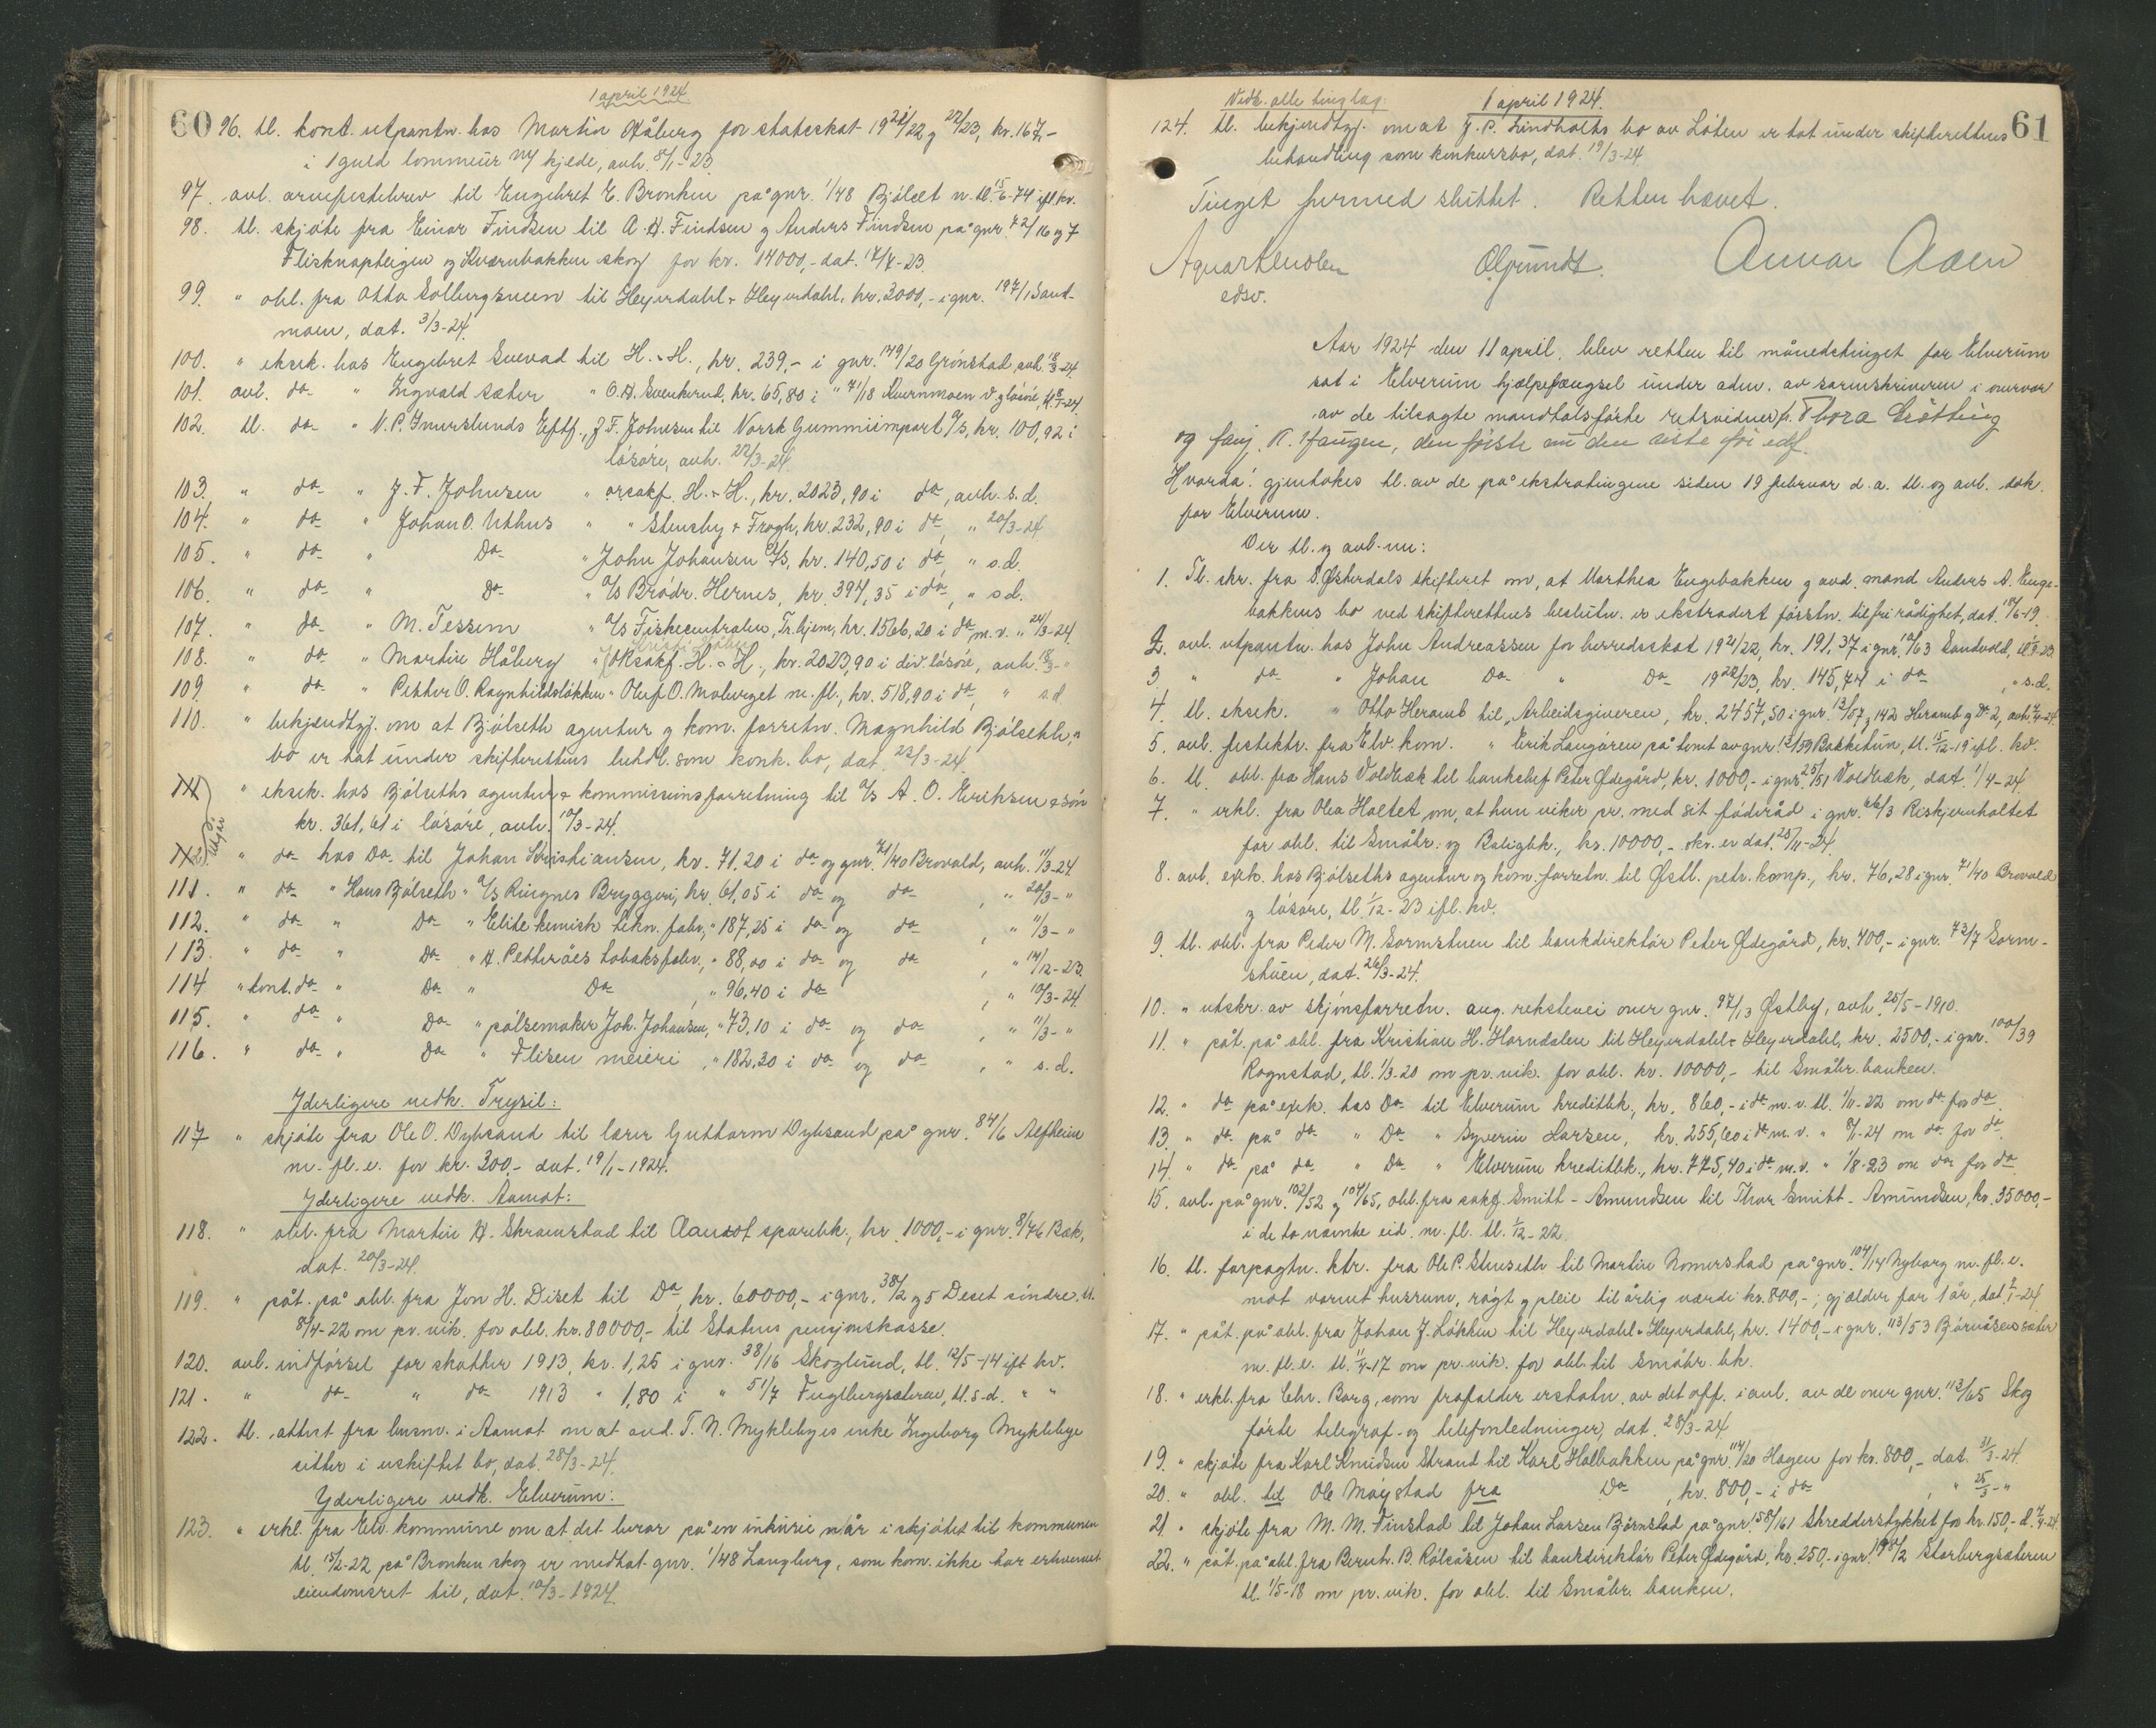 1 april 1924
60
96. tl. kont. utpantn. hos Martin Håberg for statsskat 1921/22 og 22/23, kr. 167,-
i 1 guld lommeur m/ kjede, avh. 8/1-23.
97. avl. arvefestebrev til Engebret E. Bronken på gnr. 1/48 Bjölset n. tl. 15/6-74 ifl. kv.
98. tl. skjöte fra Einar Findsen til A. H. Findsen og Anders Findsen på gnr. 72/16 og 7
Flisknapteigen og Kvernbakken skog for kr. 14000,- dat. 17/4-23.
99. " obl. fra Otto Solbergsveen til Heyerdahl & Heyerdahl, kr. 3000,- i gnr. 197/1 Sand-
moen, dat. 3/3-24.
100. " eksek. hos Engebret Svevad til H. & H., kr. 239,- i gnr. 149/20 Grönstad, avh. 18/3-24.
101. avl. do " Ingvald Sæter " O. H. Svenkerud, kr. 65,80 i " 71/18 Kvernmoen v. glösöre, tl. 18/1-24.
102. tl. do " N. P. Imerslunds Eftf., J. F. Johnsen til Norsk Gummiimport A/S, kr. 100,92 i
lösöre, avh. 22/3-24.
103. " do " J. F. Johnsen " orsakf. H. & H., kr. 2023,90 i do, avh. s.d.
104. " do " Johan O. Uthus " " Stensby & Frogh, kr. 232,90 i do, " 20/3-24
105. " do " Do " John Johansen A/S, kr. 140,50 i do, " s.d.
106. " do " Do " A/S Brödr. Hernes, kr. 394,35 i do, " s.d.
107. " do " M. Tessem " A/S Fiskecentralen, Tr.hjem, kr. 1566,20 i do m.v. " 24/3-24.
108. " do " Martin Håberg " orsakf. H. & H., kr. 2023,90 i div. lösöre, avh. 18/3-"
109. " do " Petter O. Ragnhildslökken " Oluf O. Moberget m.fl., kr. 518,90 i do, " s.d.
110. " bekjendtgj. om at Bjölseth agentur og kom. forretn. Magnhild Bjölseth,"
bo er tat under skifterettens behdl. som konk. bo, dat. 22/3-24.
111 " eksek. hos Bjölseths agentur & kommissionsforretning til A/S A. O. Eriksen & sön
kr. 361,61 i lösöre, avh. 10/3-24.
Utgår
112. " do hos Do til Johan Kristiansen, kr. 71.20 i do og gnr. 71/40 Brovold, avh. 11/3-24
111. " do " Hans Bjölseth " A/S Ringnes Bryggeri, kr. 61,05 i do og do, " 20/3-"
112. " do " Do " Elite kemisk tekn. fabr., " 187,25 i do og do, " 11/3-"
113. " do " Do " H. Petteröes tobaksfabr., " 88,00 i do og do, " 14/12-23.
114 " kont. do " Do " Do, " 96,40 i do, " 10/3-24.
115. " do " Do " pölsemaker Joh. Johansen, " 73,10 i do og do, " 11/3-"
116. " do " Do " Flisen meieri, " 182,30 i do og do, " s.d.
Yderligere vedk. Trysil:
117 " skjöte fra Ole O. Dybsand til lærer Guttorm Dybsand på gnr. 84/6 Alfheim
m. fl. e. for kr. 300,- dat. 19/1-1924.
Yderligere vedk. Aamot:
118. " obl. fra Martin H. Skramstad til Aamot sparebk., kr. 1000,- i gnr. 8/76 Bæk,
dat. 20/3-24.
119. " påt. på obl. fra Jon H. Diset til Do, kr. 60000,- i gnr. 38/2 og 5 Deset söndre, tl.
8/4-22 om pr. vik. for obl. kr. 80000,- til Statens pensjonskasse.
120. avl. indförsel for skatter 1913, kr. 1,25 i gnr. 38/16 Skoglund, tl. 12/5-14 ift kv.
121. " do " do 1913 " 1,80 i " 51/7 Fuglbergsæteren, tl. s.d. " "
122. tl. attest fra lensm. i Aamot om at avd. T. N. Myklebyes enke Ingeborg Myklebye
sitter i uskiftet bo, dat. 28/3-24.
Yderligere vedk. Elverum:
123. " erkl. fra Elv. kommune om at det beror på en inkurie når i skjötet til kommunen
tl. 15/2-22 på Bronken skog er medtat gnr. 1/48 Langberg, som kom. ikke har erhvervet
eiendomsret til, dat. 10/3-1924.
Vedk. alle tinglag.
1 april 1924.
61
124. tl. bekjendtgj. om at J. P. Lindholts bo av Löten er tat under skifterettens
behandling som konkursbo, dat. 19/3-24
Tinget hermed sluttet. Retten hævet.
Aar 1924 den 11 april, blev retten til månedstinget for Elverum
sat i Elverum hjælpefængsel under adm. av sorenskriveren i overvær
av de tilsagte mandtalsförte retsvidner fr. Thora Grötting
og fanj. K. Haugen, den förste en den siste för edf.
Hvorda: gjentokes tl. av de på ekstratingene siden 19 februar d.a. tl. og avl. dok.
for Elverum.
Der tl. og avl. nu:
1. Tl. skr. fra S. Østerdals skifteret om, at Marthea Engebakken og avd. mand Anders A. Enge-
bakkens bo ved skifterettens beslutn. er ekstradert förstn. til fri rådighet, dat. 18/6-19.
2. avl. utpantn. hos John Andreassen for herredsskat 1921/22, kr. 191,37 i gnr. 10/63 Sandvold, tl. 1/9-23.
3. " do " Johan Do " Do 1922/23, kr. 145,74 i do, " s.d.
4. tl. eksek. " Otto Heramb til "Arbeidsgiveren, kr. 2457,50 i gnr. 13/57 og 142 Heramb og Do 2, avh. 4/4-24
5. avl. festektr. fra Elv. kom. " Erik Langåren på tomt av gnr. 13/159 Bakketun, tl. 5/12-19 ifl. kv.
6. tl. obl. fra Hans Voldbæk til banksjef Peter Ødegård, kr. 1000,- i gnr. 25/51 Voldbæk, dat. 1/4-24.
7. " erkl. fra Olea Holtet om, at hun viker pr. med sit föderåd i gnr. 66/3 Riskjernholtet
for obl. til Småbr. og Boligbk., kr. 10000,- skr. er dat. 20/11-24.
8. avl. exek. hos Bjölseths agentur og kom. forretn. til Østl. petr. komp., kr. 76,28 i gnr. 71/40 Brovold
og lösöre, tl. 1/12-23 ifl. kv.
9. tl. obl. fra Peder M. Sormstuen til bankdirektör Peter Ødegård, kr. 400,- i gnr. 73/7 Sorm-
stuen, dat. 26/3-24.
10. " utskr. av skjönsforretn. ang. rekstevei over gnr. 97/13 Østby, avh. 25/5-1910.
11. " påt. på obl. fra Kristian H. Horndalen til Heyerdahl & Heyerdahl, kr. 2500,- i gnr. 100/39
Rognstad, tl. 1/3-20 om pr. vik. for obl. kr. 10000,- til Småbr. banken.
12. " do på exek. hos Do til Elverum kreditbk., kr. 860,- i do m.v. tl. 1/11-22 om do for do.
13. " do på do " Do " Syverin Larsen, kr. 255,60 i do m.v. " 8/1-24 om do for do.
14. " do på do " Do " Elverum kreditbk., kr. 775,40 i do m.v. " 1/8-23 om do for do
15. avl. på gnr. 102/52 og 104/65, obl. fra sakf. Smitt-Amundsen til Thor Smitt-Amundsen, kr. 35000,-
i de to nævnte eid. m. fl. tl. 1/12-22.
16. tl. forpagtn. ktr. fra Ole P. Stenseth til Martin Nomerstad på gnr. 104/14 Nyborg m. fl. e.
mot varmt husrum, rögt og pleie til årlig værdi kr. 800,-; gjælder for 1 år, dat. 2/1-24.
17. " påt. på obl. fra Johan J. Lökken til Heyerdahl & Heyerdahl, kr. 1400,- i gnr. 113/53 Björnåsensæter
m. fl. e. tl. 11/4-17 om pr. vik. for obl. til Småbr. bk.
18. " erkl. fra Chr. Borg, som frafalder erstatn. av det off. i anl. av de over gnr. 113/65 Skog
förte telegraf- og telefonledninger, dat. 28/3-24
19. " skjöte fra Karl Knudsen Strand til Karl Holbakken på gnr. 114/20 Hagen for kr. 800,- dat. 31/3-24.
20. " obl. til Ole Möystad fra Do, kr. 800,- i do, " 25/3-"
21. " skjöte fra M. M. Finstad til Johan Larsen Björnstad på gnr. 158/161 Skredderstykket for kr. 150,- d. 7/4-24.
22. " påt. på obl. fra Bernh. B. Rölsåsen til bankdirektör Peter Ødegård, kr. 250,- i gnr. 198/2 Storbergsæteren
tl. 1/5-18 om pr. vik. for obl. til Småbr. banken.